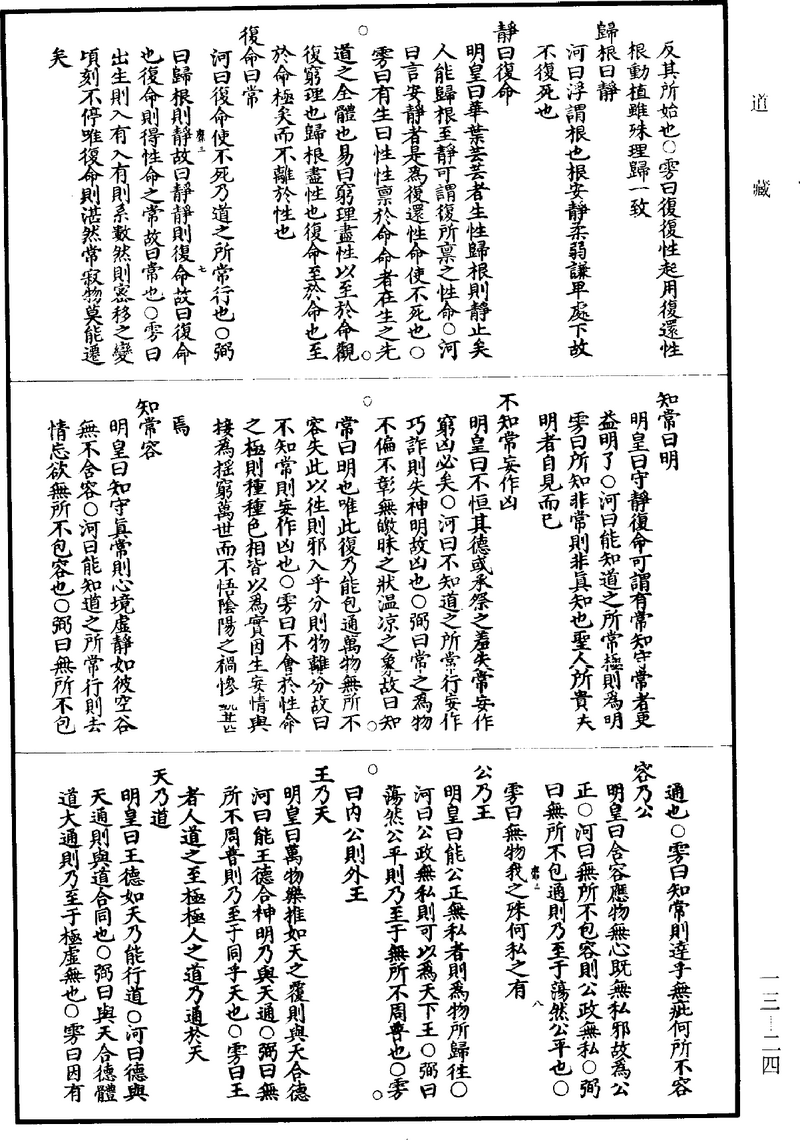 道藏
一三—二四
反其所始也〇雱曰復復性起用復還性
根動植雖殊理歸一致
歸根曰靜
河曰浮謂根也根安靜柔弱謙卑處下故
不復死也
靜曰復命
明皇曰華葉芸芸者生性歸根則靜止矣
人能歸根至靜可謂復所禀之性命〇河
曰言安靜者是為復還性命使不死也〇
雱曰有生曰性性禀於命命者在生之先
道之全體也易曰窮理盡性以至於命觀
復窮理也歸根盡性也復命至於命也至
於命極矣而不離於性也
復命曰常
河曰復命使不死乃道之所常行也〇弼
曰歸根則靜故曰靜靜則復命故曰復命
也復命則得性命之常故曰常也〇雱曰
出生則入有入有則系數然則密移之變
頃刻不停唯復命則湛然常寂物莫能遷
矣
知常曰明
明皇曰守靜復命可謂有常知守常者更
益明了〇河曰能知道之所常極則為明
雱曰所知非常則非真知也聖人所貴夫
明者自見而已
不知常妄作凶
明皇曰不恒其德或承祭之羞失常妄作
窮凶必矣〇河曰不知道之所常行妄作
巧詐則失神明故凶也〇弼曰常之為物
不偏不彰無皦昧之狀温凉之象故曰知
常曰明也唯此復乃能包通萬物無所不
容失此以徃則邪入乎分則物離分故曰
不知常則妄作凶也〇雱曰不會於性命
之極則種種色相皆以為實因生妄情與
接為揺窮萬世而不悟陰陽之禍慘
焉
知常容
明皇曰知守真常則心境虛靜如彼空谷
無不含容〇河曰能知道之所常行則去
情忘欲無所不包容也〇弼曰無所不包
通也〇雱曰知常則達乎無疵何所不容
容乃公
明皇曰含容應物無心既無私邪故為公
正〇河曰無所不包容則公政無私〇弼
曰無所不包通則乃至于蕩然公平也〇
雱曰無物我之殊何私之有
八
公乃王
明皇曰能公正無私者則為物所歸往〇
河曰公政無私則可以為天下王〇弼曰
蕩然公平則乃至于無所不周普也〇雱
曰内公則外王
王乃天
明皇曰萬物樂推如天之覆則與天合德
河曰能王德合神明乃與天通〇弼曰無
所不周普則乃至于同乎天也〇雱曰王
者人道之至極極人之道乃通於天
天乃道
明皇曰王德如天乃能行道〇河曰德與
天通則與道合同也〇弼曰與天合德體
道大通則乃至于極虛無也〇雱曰因有